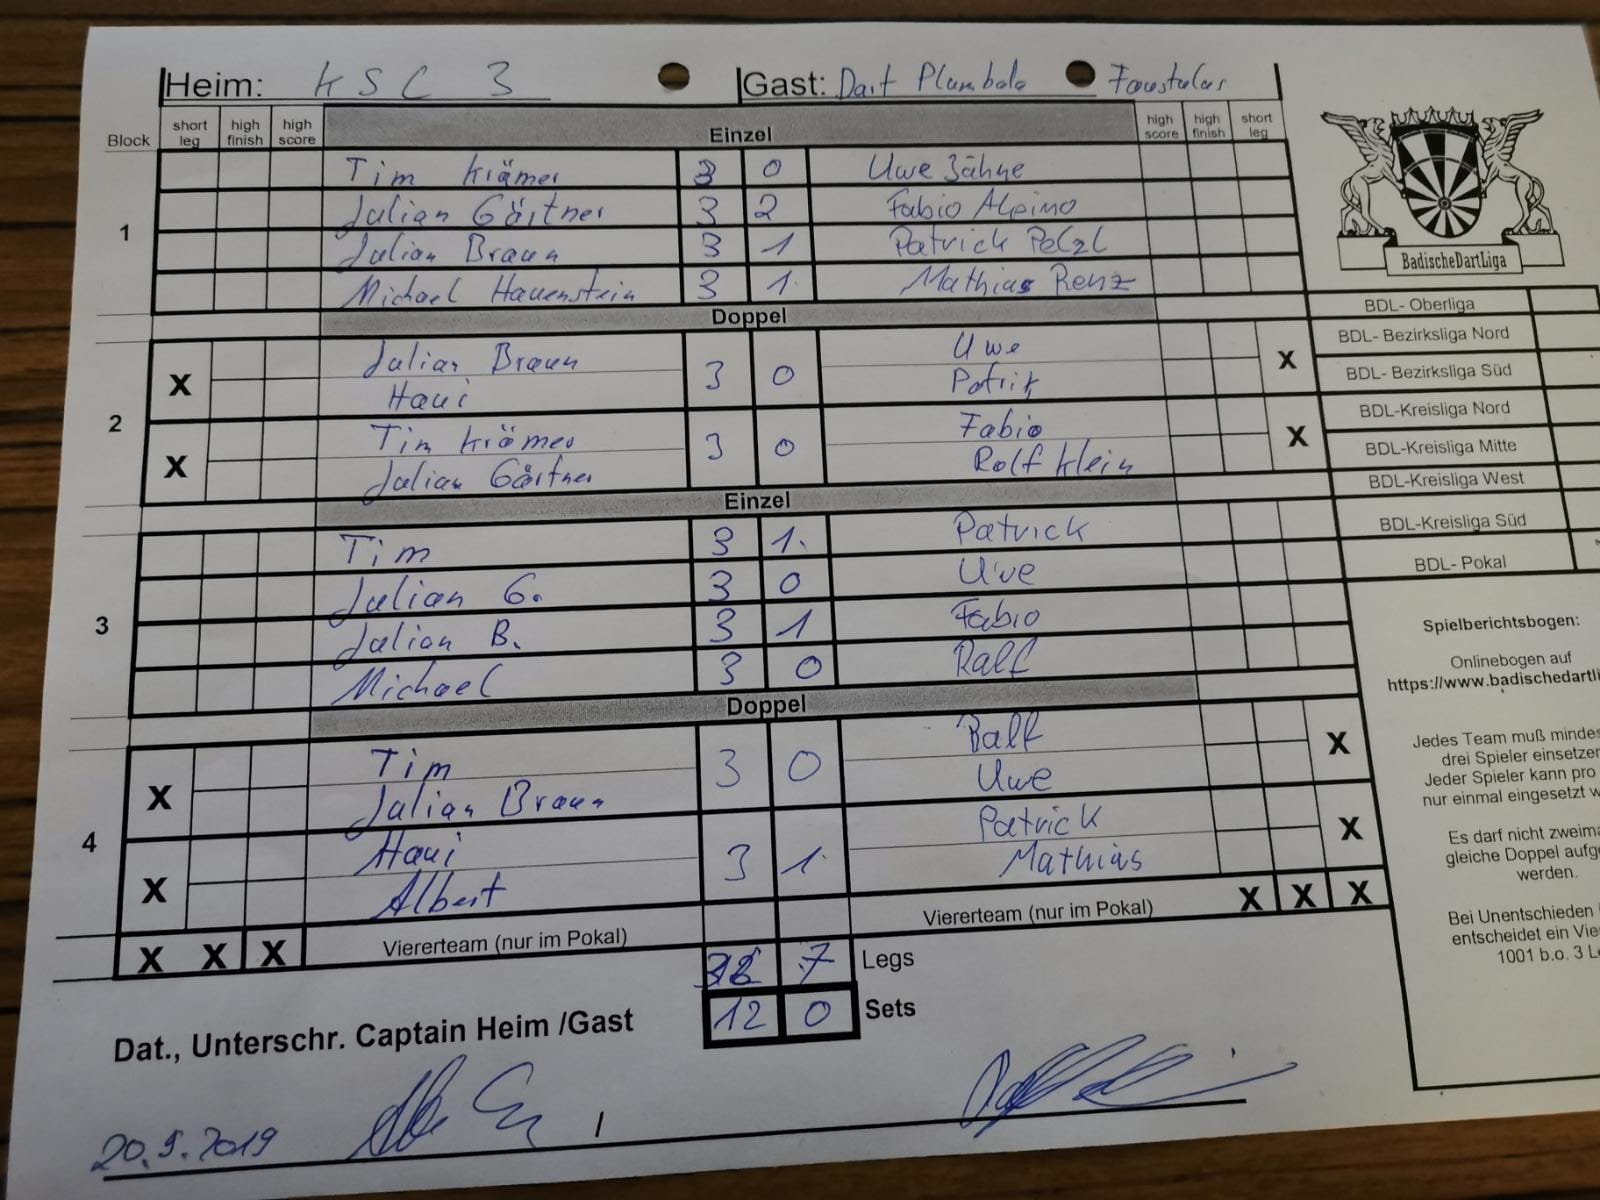 Heim: KSC 3 Gast: Dart Plumbala
Block short leg high finish high score Einzel high score high finish short leg
1
Tim Krämer 3 0 Uwe Jähne
Julian Gärtner 3 2 Fabio Alpino
Julian Braun 3 1 Patrick Pelzl
Michael Hauenstein 3 1 Mathias Renz
Doppel
2
X Julian Braun 3 0 Uwe X
Haui Patrik
X Tim Krämer 3 0 Fabio X
Julian Gärtner Rolf Klein
Einzel
3
Tim 3 1. Patrick
Julian G. 3 0 Uwe
Julian B. 3 1 Fabio
Michael 3 0 Ralf
Doppel
4
X Tim 3 0 Ralf X
Julian Braun Uwe
X Haui 3 1. Patrick X
Albert Mathias
X X X Viererteam (nur im Pokal) Viererteam (nur im Pokal) X X X
7 Legs
12 0 Sets
Dat., Unterschr. Captain Heim /Gast
20.9.2019 /
BadischeDartLiga
BDL- Oberliga
BDL- Bezirksliga Nord
BDL- Bezirksliga Süd
BDL-Kreisliga Nord
BDL-Kreisliga Mitte
BDL-Kreisliga West
BDL-Kreisliga Süd
BDL- Pokal
Spielberichtsbogen:
Onlinebogen auf
https://www.badischedartli
Jedes Team muß mindes
drei Spieler einsetzen
Jeder Spieler kann pro
nur einmal eingesetzt w
Es darf nicht zweima
gleiche Doppel aufge
werden.
Bei Unentschieden
entscheidet ein Vie
1001 b.o. 3 Le